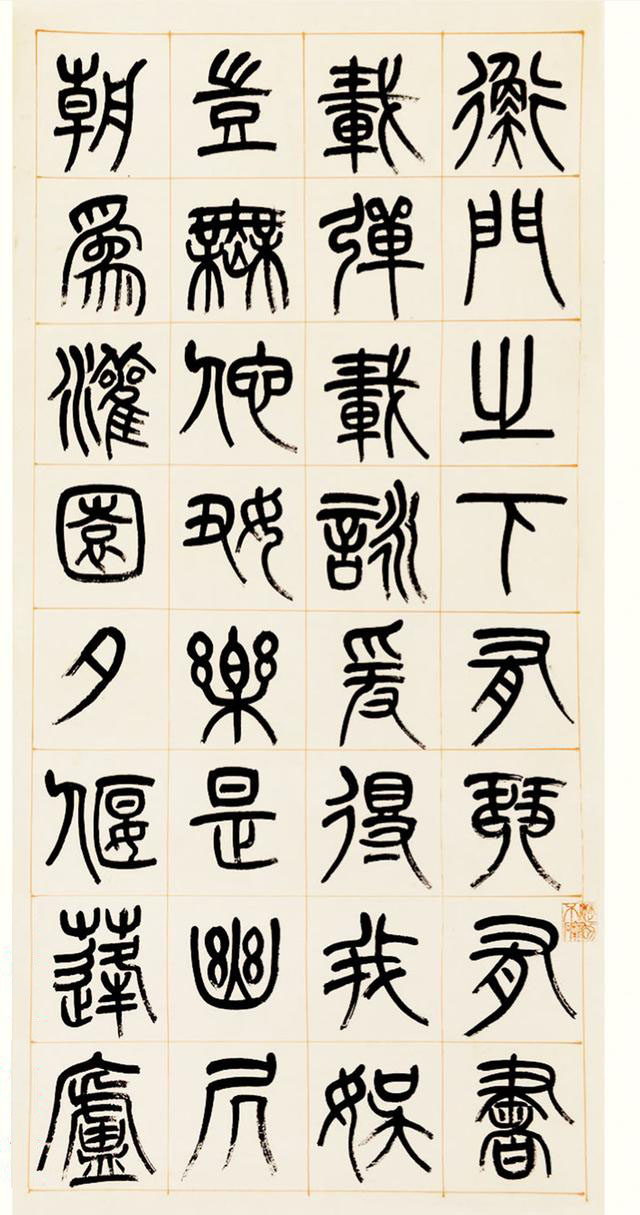 衡門之下有琴有書
載彈載詠爰得我娛
豈無他好樂是幽凥
朝爲灌園夕偃蓬廬